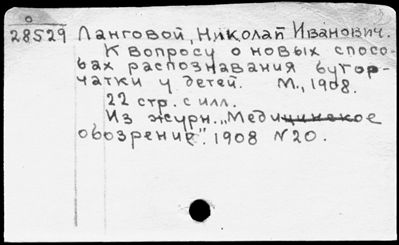 28529 Ланговой, Николай Иванович.
К вопросу о новых спосо-
бах распознавания бугор-
чатки у детей. М., 1908.
22 стр. с илл.
Из журн. „Медицинское
обозрение". 1908 N 20.